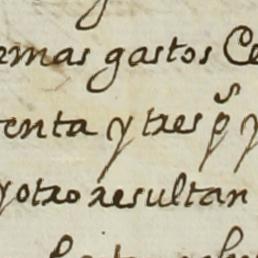 emas gastos Ce
enta y tres p.s y
y otro resultan